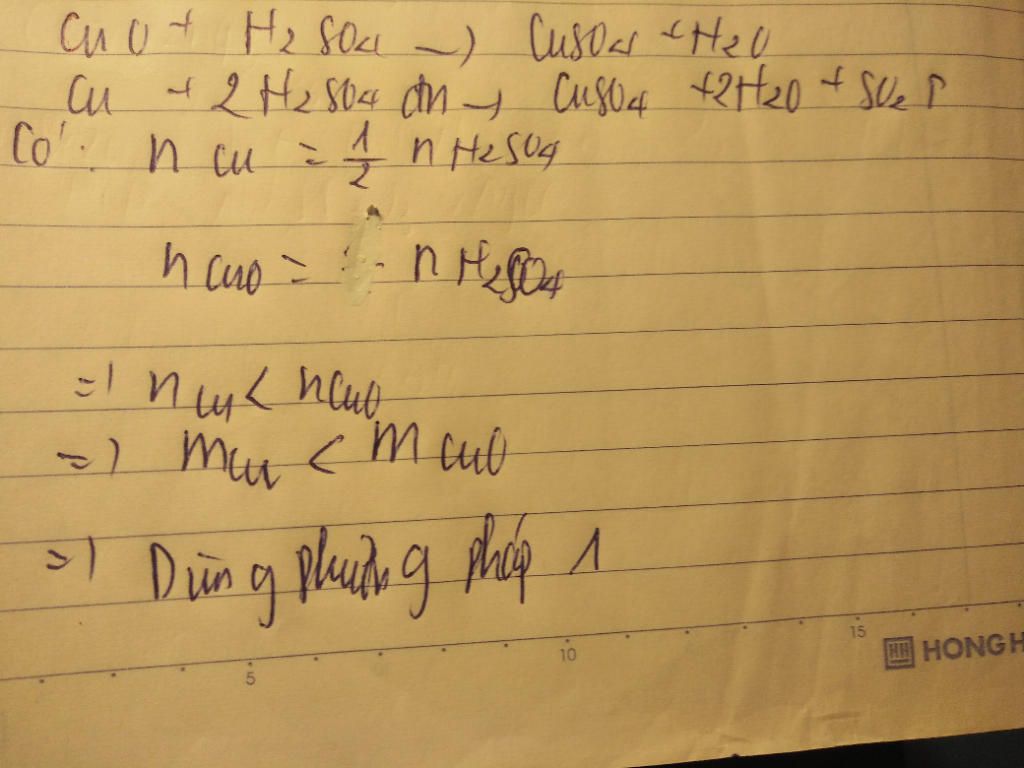 CuO + H2SO4 → CuSO4 + H2O
Cu + 2H2SO4 đn → CuSO4 + 2H2O + SO2 ↑
Có: nCu = 1/2 nH2SO4
nCuO = nH2SO4
=) nCu < nCuO
=) mCu < mCuO
=) Dùng phương pháp 1
5 10 15 HONG H